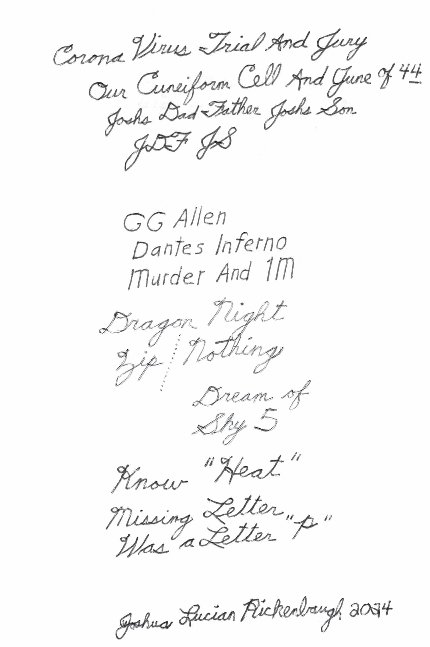 Corona Virus Trial And Jury
Our Cuneiform Cell And June of 44
Joshs Dad-Father Joshs Son
JDF JS
GG Allen
Dantes Inferno
Murder And 1M
Dragon Night
Zip / Nothing
Dream of
Sky 5
Know "Heat"
Missing Letter
Was a Letter "p"
Joshua Lucian Rickenbaugh 2024